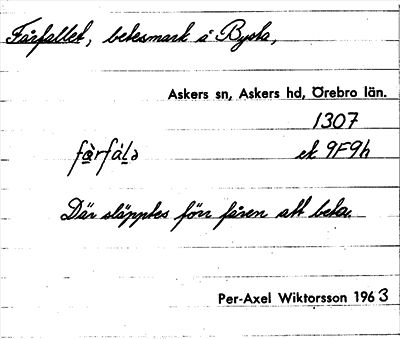 Fårfallet, betesmark å Bysta,
Askers sn, Askers hd, Örebro län.
1307
fàrfálə ek 9F9h
Där släpptes förr fåren att beta.
Per-Axel Wiktorsson 1963